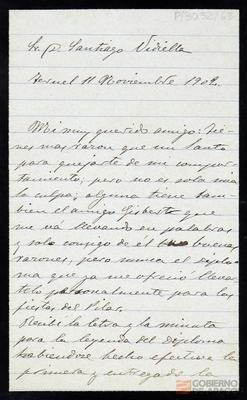 Sr. D. Santiago Vidiella
Teruel 11 Noviembre 1902.
Mi muy querido amigo: Tie-
nes mas razon que un Santo
para quejarte de mi compor-
tamiento; pero no es sola mia
la culpa; alguna tiene tam-
bien el amigo Gisbert que
me vá llevando en palabras
y solo consigo de él buenas
razones, pero nunca el diplo-
ma que ya me ofreció lleva-
telo personalmente para las
fiestas del Pilar.
Recibí la letra y la minuta
para la leyenda del diploma
habiendose hecho efectiva la
primera y entregada la
GOBIERNO
DE ARAGON